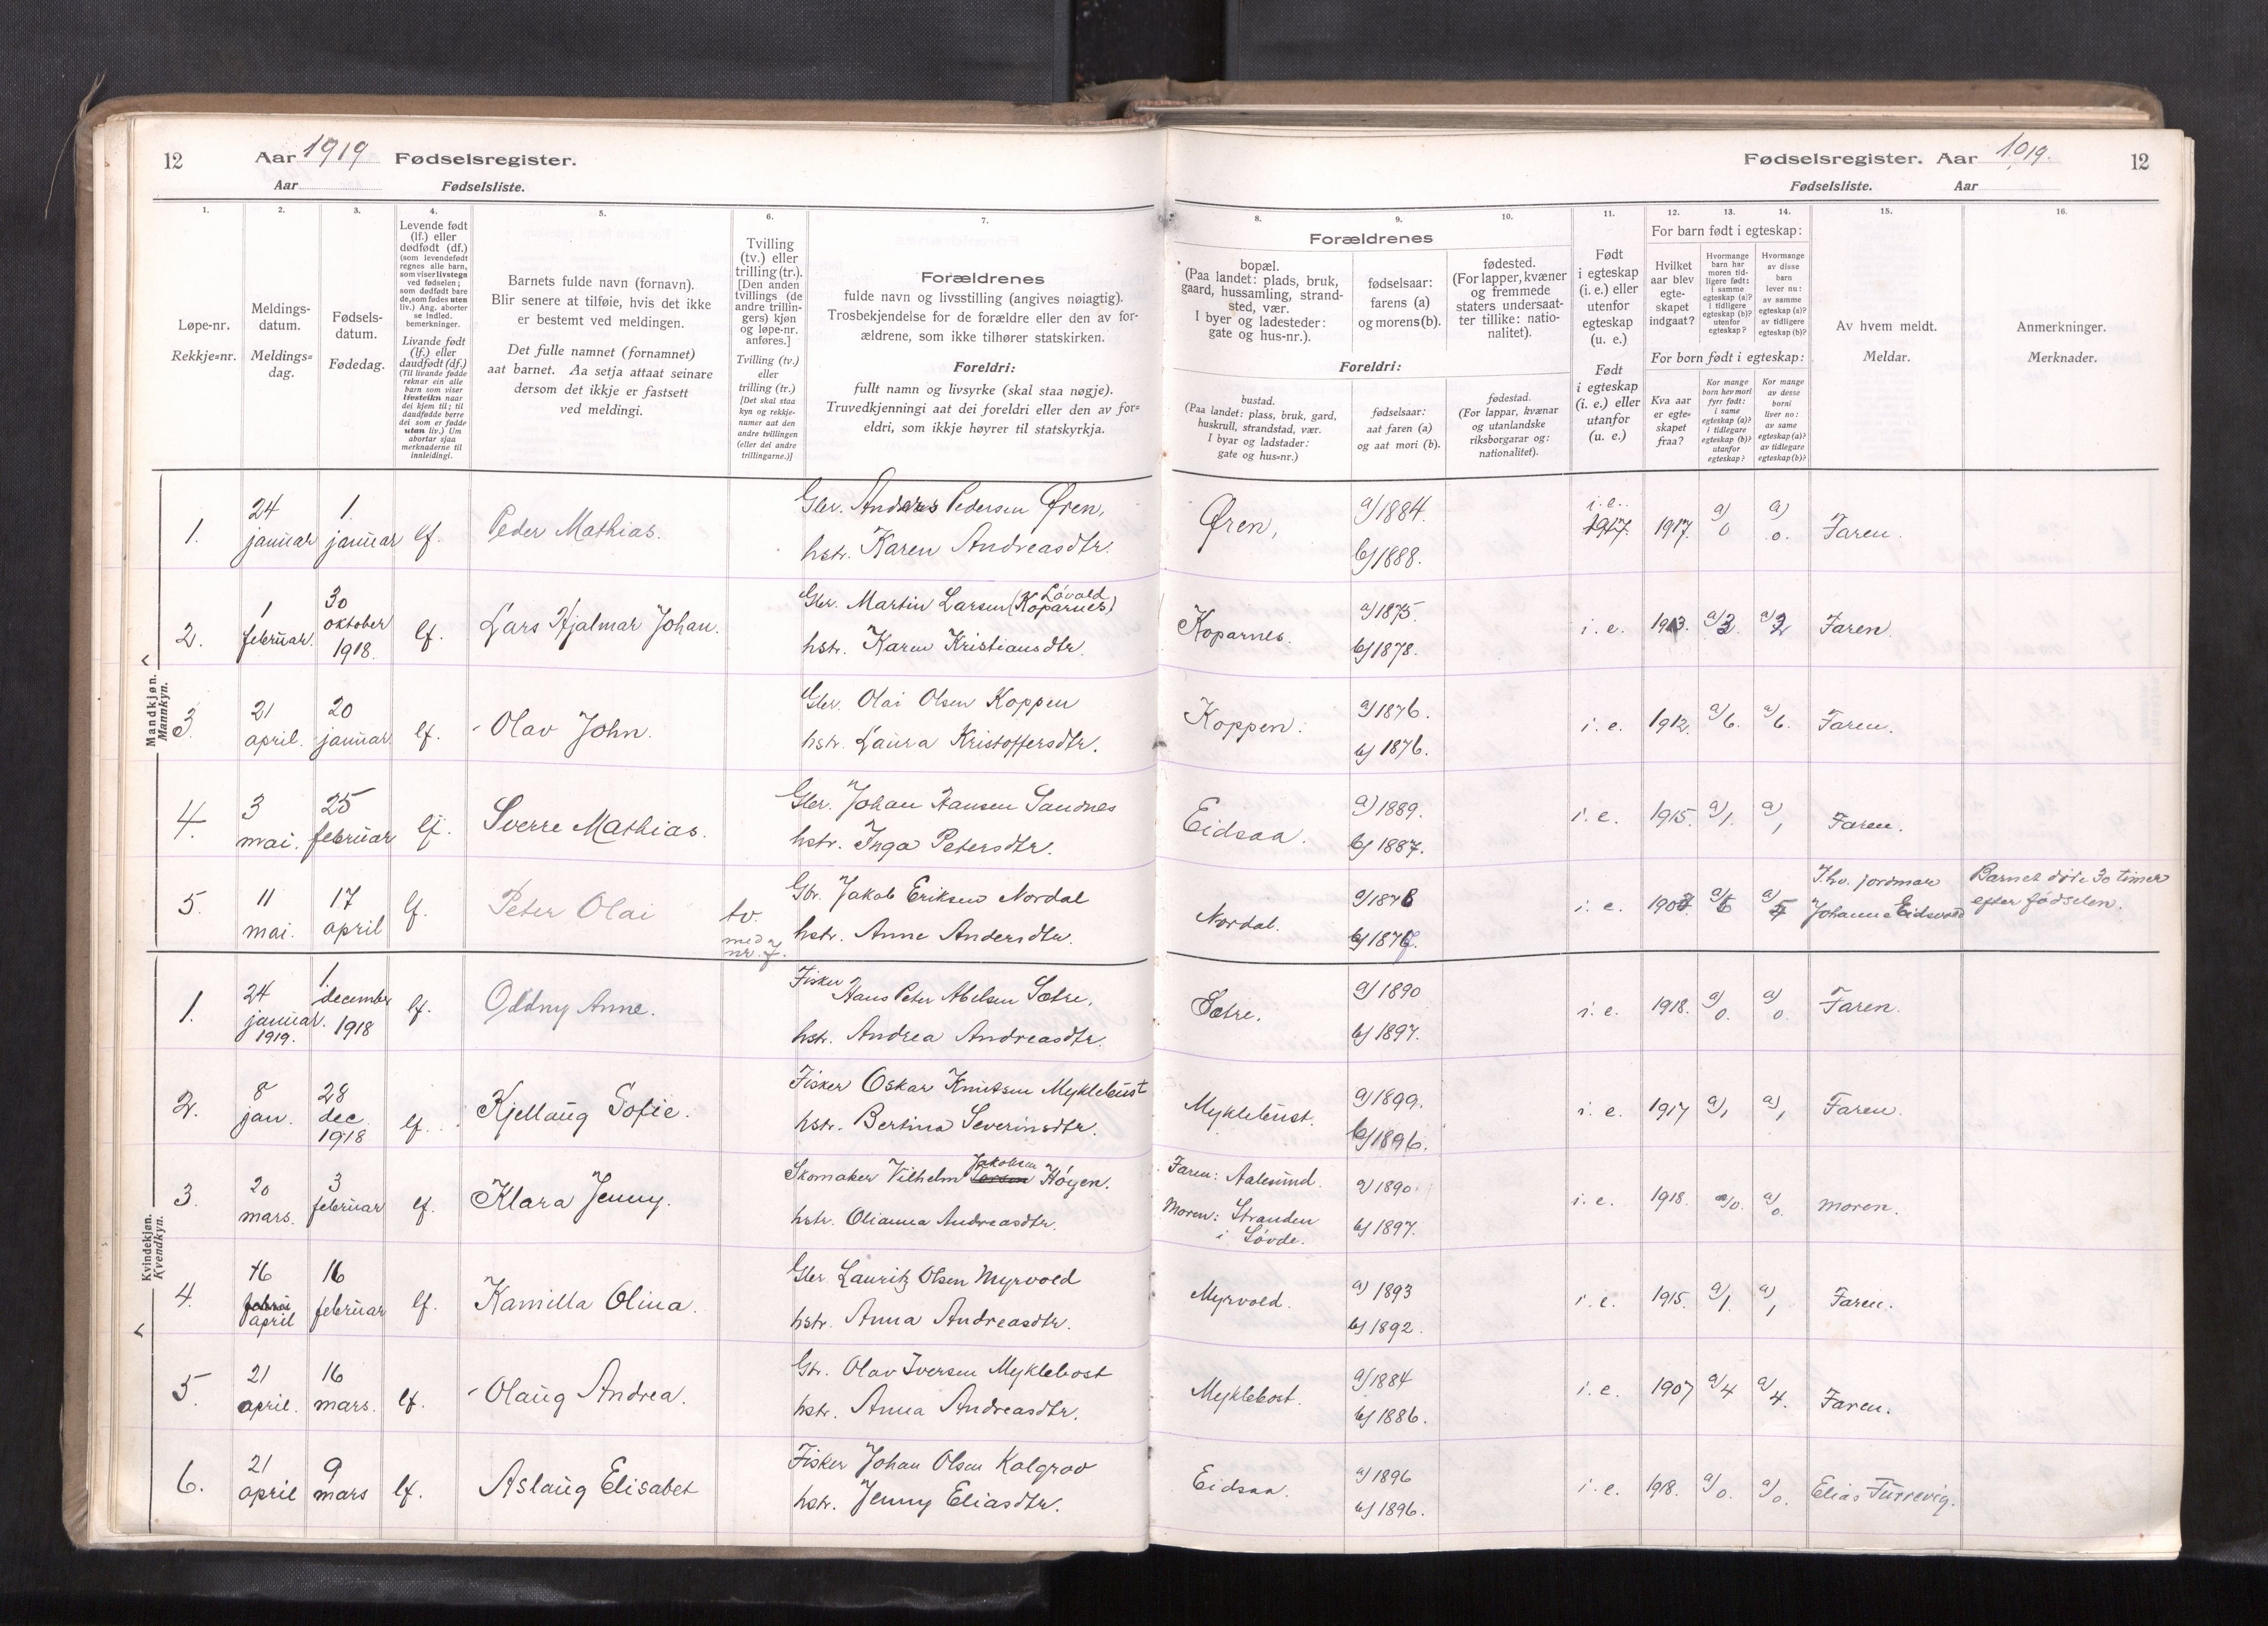 12 Aar 1919 Fødselsregister.
Aar Fødselsliste.
Fødselsregister. Aar 1919. 12
Fødselsliste. Aar
1. 2. 3. 4. 5. 6. 7. 8. 9. 10. 11. 12. 13. 14. 15. 16.
Løpe-nr.
Rekkje=nr.
Meldings-
datum.
Meldings=
dag.
Fødsels-
datum.
Fødedag.
Levende født
(lf.) eller
dødfødt (df.)
(som levendefødt
regnes alle barn,
som viser livstegn
ved fødselen;
som dødfødt bare
de, som fødes uten
liv.) Ang. aborter
se indled.
bemerkninger.
Livande født
(lf.) eller
daudfødt (df.)
(Til livande fødde
reknar ein alle
barn som viser
livsteikn naar
dei kjem til; til
daudfødde berre
dei som er fødde
utan liv.) Um
abortar sjaa
merknaderne til
innleidingi.
Barnets fulde navn (fornavn).
Blir senere at tilføie, hvis det ikke
er bestemt ved meldingen.
Det fulle namnet (fornamnet)
aat barnet. Aa setja attaat seinare
dersom det ikkje er fastsett
ved meldingi.
Tvilling
(tv.) eller
trilling (tr.).
[Den anden
tvillings (de
andre trillin-
gers) kjøn
og løpe-nr.
anføres.]
Tvilling (tv.)
eller
trilling (tr.)
[Det skal staa
kyn og rekkje-
numer aat den
andre tvillingen
(eller dei andre
trillingarne.)]
Forældrenes
fulde navn og livsstilling (angives nøiagtig).
Trosbekjendelse for de forældre eller den av for-
ældrene, som ikke tilhører statskirken.
Foreldri:
fullt namn og livsyrke (skal staa nøgje).
Truvedkjenningi aat dei foreldri eller den av for=
eldri, som ikkje høyrer til statskyrkja.
Forældrenes
bopæl.
(Paa landet: plads, bruk,
gaard, hussamling, strand-
sted, vær.
I byer og ladesteder:
gate og hus-nr.).
fødselsaar:
farens (a)
og morens (b).
fødested.
(For lapper, kvæner
og fremmede
staters undersaat-
ter tillike: natio-
nalitet).
Foreldri:
bustad.
(Paa landet: plass, bruk, gard,
huskrull, strandstad, vær.
I byar og ladstader:
gate og hus=nr.)
fødselsaar:
aat faren (a)
og aat mori (b).
fødestad.
(For lappar, kvænar
og utanlandske
riksborgarar og:
nationalitet).
Født
i egteskap
(i. e.) eller
utenfor
egteskap
(u. e.)
Født
i egteskap
(i. e.) eller
utanfor
(u. e.)
For barn født i egteskap:
Hvilket
aar blev
egte-
skapet
indgaat?
Hvormange
barn har
moren tid-
ligere født:
i samme
egteskap (a)?
i tidligere
egteskap (b)?
utenfor
egteskap?
Hvormange
av disse
barn
lever nu:
av samme
egteskap (a)?
av tidligere
egteskap (b)?
For born født i egteskap:
Kva aar
er egte=
skapet
fraa?
Kor mange
born hev mori
fyrr født:
i same
egteskap (a)?
i tidlegare
egteskap (b)?
utanfor
egteskap?
Kor mange
av desse
borni
liver no:
av same
egteskap (a)?
av tidlegare
egteskap (b)?
Av hvem meldt.
Meldar.
Anmerkninger.
Merknader.
Mandkjøn.
Mannkyn.
1. 24 januar 1. januar lf. Peder Mathias. Gbr. Anders Pedersen Øren, Øren, a) 1884. i. e. 1917. 1917. a) 0 a) 0. Faren.
hstr. Karen Andreasdtr. b) 1888.
2. 1 februar. 30 oktober 1918. lf. Lars Hjalmar Johan. Gbr. Martin Larsen (Koparnes) Løvold Koparnes. a) 1875. i. e. 1913. a) 3. a) 2 Faren.
hstr. Karen Kristiansdtr. b) 1878.
3. 21 april. 20 januar. lf. - Olav John. Gbr. Olai Olsen Koppen Koppen. a) 1876. i. e. 1912. a) 6. a) 6. Faren.
hstr. Laura Kristoffersdtr. b) 1876.
4. 3 mai. 25 februar lf. Sverre Mathias. Gbr. Johan Hansen Sandnes Eidsaa. a) 1889. i. e. 1915. a) 1. a) 1 Faren.
hstr. Inga Petersdtr. b) 1887.
5. 11 mai. 17 april lf. Peter Olai tv. med nr. 7. Gbr. Jakob Eriksen Nordal Nordal. a) 1878 i. e. a) a) 5 jordmor Johanne Eidsvold Barnet døde 30 timer efter fødselen.
hstr. Anne Andersdtr. b) 1877.
Kvindekjøn.
Kvendkyn.
1. 24 januar. 1919. 1. december 1918 lf. Oddny Anne. Fisker Hans Peter Abelsen Sætre, Sætre. a) 1890 i. e. 1918. a) 0. a) 0. Faren.
hstr. Andrea Andreasdtr. b) 1897.
2. 8 jan. 28 dec. 1918 lf. Kjellaug Sofie. Fisker Oskar Knutsen Myklebust Myklebust. a) 1899. i. e. 1917 a) 1 a) 1 Faren.
hstr. Bertina Severinsdtr. b) 1896.
3. 20 mars. 3 februar lf. Klara Jenny. Skomaker Vilhelm Jakobsen Høyen. Faren: Aalesund. a) 1890. i. e. 1918. a) 0. a) 0. Moren.
hstr. Olianna Andreasdtr. Moren: Stranden i Søvde. b) 1897.
4. 16 april 16 februar lf. Kamilla Olina. Gbr. Lauritz Olsen Myrvold Myrvold. a) 1893 i. e. 1915. a) 1. a) 1 Faren.
hstr. Anna Andreasdtr. b) 1892.
5. 21 april. 16 mars. lf. - Olaug Andrea. Gbr. Olav Iversen Myklebost Myklebost. a) 1884 i. e. 1907 a) 4 a) 4. Faren.
hstr. Anna Andreasdtr. b) 1886.
6. 21 april 9 mars lf. Aslaug Elisabet Fisker Johan Olsen Kalgrav Eidsaa. a) 1896 i. e. 1918. a) 0. a) 0. Elias Furrevig.
hstr. Jenny Eliasdtr. b) 1896.